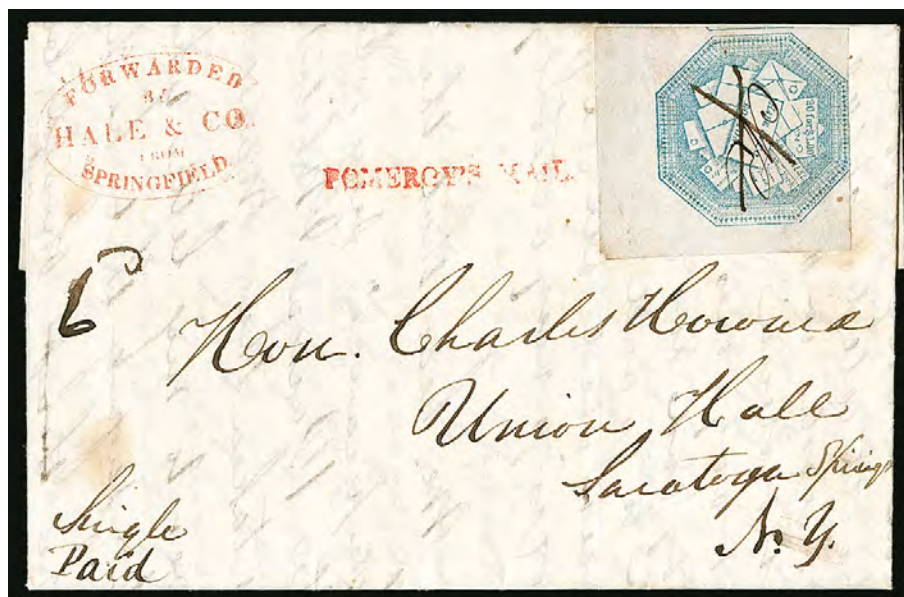 FORWARDED
BY
HALE & CO.
FROM
SPRINGFIELD.
POMEROY'S MAIL.
20 for $1,00
6
Hon. Charles Howard
Union Hall
Saratoga Springs
N. Y.
Single
Paid